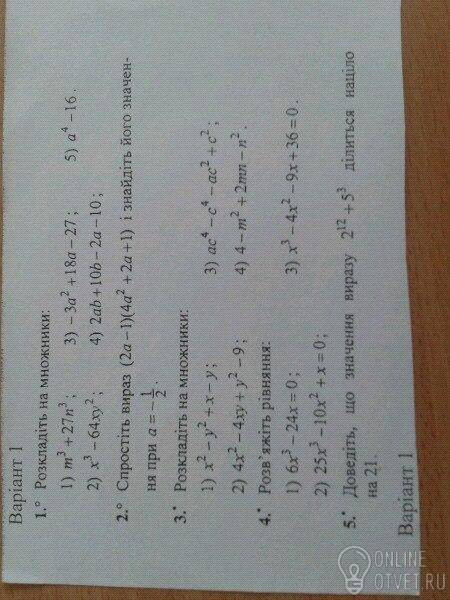 Варіант 1
1.° Розкладіть на множники:
1) m³ + 27n³; 3) −3a² + 18a − 27; 5) a⁴ − 16.
2) x³ − 64xy²; 4) 2ab + 10b − 2a − 10;
2.° Спростіть вираз (2a − 1)(4a² + 2a + 1) і знайдіть його значен-
ня при a = −1/2.
3.• Розкладіть на множники:
1) x² − y² + x − y; 3) ac⁴ − c⁴ − ac² + c²;
2) 4x² − 4xy + y² − 9; 4) 4 − m² + 2mn − n².
4.• Розв'яжіть рівняння:
1) 6x³ − 24x = 0; 3) x³ − 4x² − 9x + 36 = 0.
2) 25x³ − 10x² + x = 0;
5.• Доведіть, що значення виразу 2¹² + 5³ ділиться націло
на 21.
Варіант 1
ONLINE
OTVET.RU